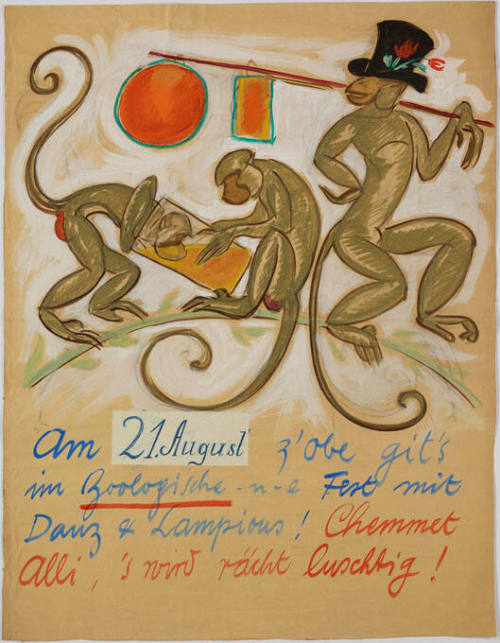 Am 21. August z'obe git's
im Zoologische-n-e Fest mit
Danz & Lampions! Chemmet
Alli, 's wird rächt luschtig!